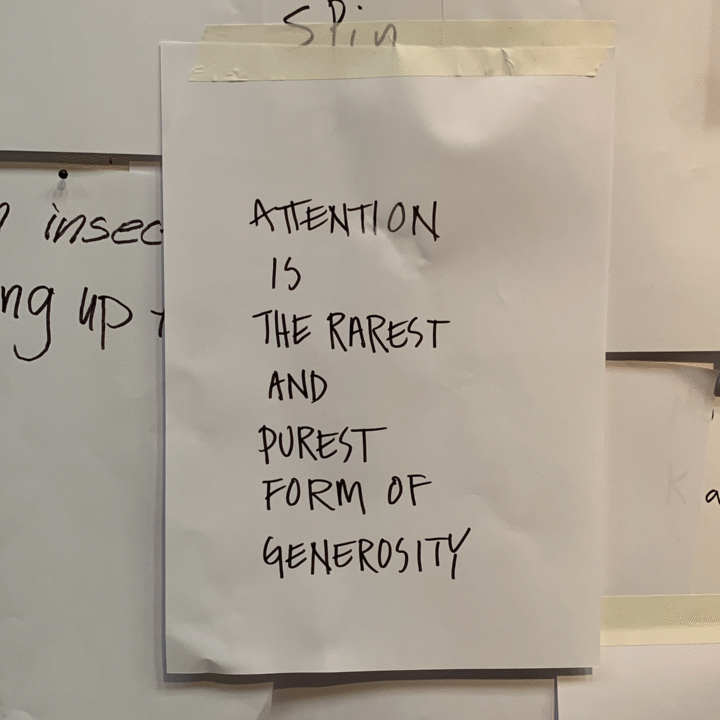 Spin
insec
ng up
ATTENTION
IS
THE RAREST
AND
PUREST
FORM OF
GENEROSITY
K a